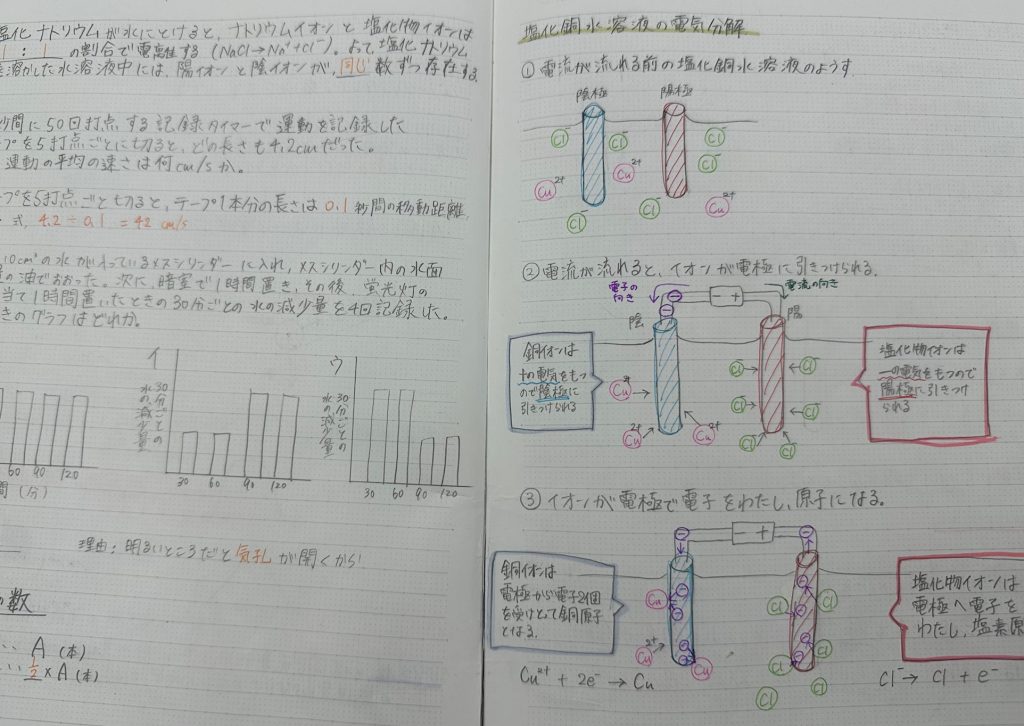 塩化ナトリウムが水にとけると、ナトリウムイオンと塩化物イオンは
1 : 1 の割合で電離する (NaCl→Na⁺+Cl⁻)。よって、塩化ナトリウム
溶かした水溶液中には、陽イオンと陰イオンが、同じ数ずつ存在する。
秒間に50回打点する記録タイマーで運動を記録した
プを5打点ごとに切ると、どの長さも4.2cmだった。
運動の平均の速さは何cm/sか。
プを5打点ごと切ると、テープ1本分の長さは0.1秒間の移動距離
式, 4.2÷0.1 = 42 cm/s
10cm³の水が入っているメスシリンダーに入れ、メスシリンダー内の水面
の油でおおった。次に、暗室で1時間置き、その後、蛍光灯の
当て1時間置いたときの30分ごとの水の減少量を4回記録した。
きのグラフはどれか。
60 90 120
間 (分)
イ
30分ごとの
水の減少量
30 60 90 120
ウ
30分ごとの
水の減少量
30 60 90 120
理由：明るいところだと気孔が開くから
の数
... A (本)
... 1/2 × A (本)
塩化銅水溶液の電気分解
① 電流が流れる前の塩化銅水溶液のようす
陰極 陽極
Cl⁻ Cl⁻ Cl⁻
Cl⁻ Cl⁻
Cu²⁺ Cu²⁺ Cu²⁺
Cl⁻ Cl⁻
② 電流が流れると、イオンが電極に引きつけられる。
電子の
向き
⊖ ⊖ - +
電流の向き
陰 陽
銅イオンは
+の電気をもつ
ので陰極に
引きつけられる
Cu²⁺
Cu²⁺ Cu²⁺
Cl⁻ Cl⁻
Cl⁻ Cl⁻
Cl⁻ Cl⁻
塩化物イオンは
ーの電気をもつので
陽極に引きつけ
られる
③ イオンが電極で電子をわたし、原子になる。
⊖ - + ⊖
銅イオンは
電極から電子2個
を受けとって銅原子
となる。
Cu
Cu²⁺ Cu
Cl Cl
Cl Cl
Cl Cl
塩化物イオンは
電極へ電子を
わたし、塩素原
Cu²⁺ + 2e⁻ → Cu
Cl⁻ → Cl + e⁻